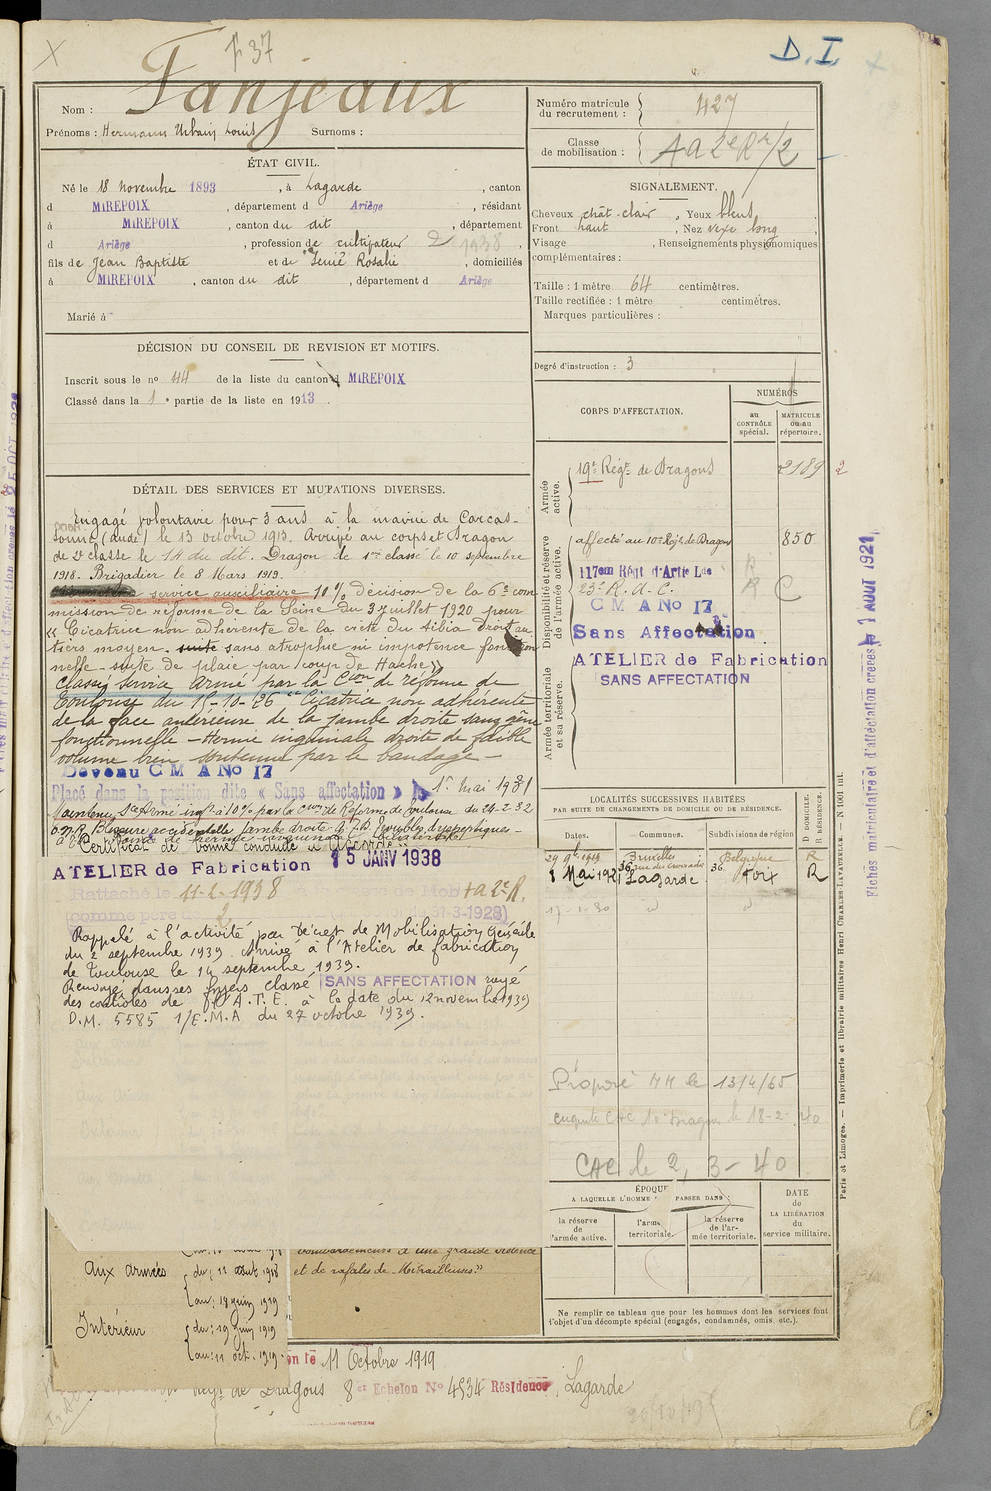 F 37
D. I.
Fanjeaux
Nom :
Prénoms : Hermann Urbain Louis Surnoms :
ÉTAT CIVIL.
Né le 18 novembre 1893, à Lagarde, canton
d MIREPOIX, département d Ariège, résidant
à MIREPOIX, canton du dit, département
d Ariège, profession de cultivateur 2 1938,
fils de Jean Baptiste et de Senié Rosalie, domiciliés
à MIREPOIX, canton du dit, département d Ariège
Marié à
DÉCISION DU CONSEIL DE REVISION ET MOTIFS.
Inscrit sous le nº 44 de la liste du canton d MIREPOIX
Classé dans la 1e partie de la liste en 1913.
DÉTAIL DES SERVICES ET MUTATIONS DIVERSES.
Engagé volontaire pour 3 ans à la mairie de Carcas-
sonne (Aude) le 13 octobre 1913. Arrivé au corps et Dragon
de 2e classe le 14 du dit. Dragon de 1re classe le 10 septembre
1918. Brigadier le 8 Mars 1919.
service auxiliaire 10 % décision de la 6e com
mission de réforme de la Seine du 3 juillet 1920 pour
« Cicatrice non adhérente de la crête du tibia droit au
tiers moyen. suite sans atrophie ni impotence fonction
nelle - suite de plaie par coup de Hache »
Classé service armé par la Cion de réforme de
Toulouse du 15-10-26 "Cicatrice non adhérente
de la face antérieure de la jambe droite sans gêne
fonctionnelle - Hernie inguinale droite de faible
volume bien soutenue par le bandage -
Devenu C M A No 17
Placé dans la position dite « Sans affectation » 1er mai 1931
Maintenu Sce Armé inf. à 10 % par la Cion de Réforme de Toulouse du 24-2-32
Blessure accidentelle jambe droite troubles dyspeptiques -
Certificat de bonne conduite « Accordé »
ATELIER de Fabrication 15 JANV 1938
Rattaché le 11-2-1938 de Mob 4 a 2e R.
(comme père de 2 31-3-1928)
Rappelé à l'activité par Décret de Mobilisation Générale
du 2 septembre 1939. Arrivé à l'Atelier de fabrication
de Toulouse le 14 septembre 1939.
Renvoyé dans ses foyers classé SANS AFFECTATION rayé
des contrôles de l'A.T.E. à la date du 12 novembre 1939
D.M. 5585 1/E.M.A du 27 octobre 1939.
Aux armées du 11 août 1918
au 18 juin 1919
Intérieur du 19 juin 1919
au 11 oct. 1919
bombardements d'une grande violence
et de rafales de Mitrailleuses."
11 Octobre 1919
Régt de Dragons 8e Echelon No 4534 Résidence, Lagarde
Numéro matricule du recrutement : 427
Classe de mobilisation : 4 a 2e Rr/2
SIGNALEMENT.
Cheveux chât-clair, Yeux bleus
Front haut, Nez vexe long
Visage , Renseignements physionomiques
complémentaires :
Taille : 1 mètre 64 centimètres.
Taille rectifiée : 1 mètre centimètres.
Marques particulières :
Degré d'instruction : 3
CORPS D'AFFECTATION.
NUMÉROS
au CONTRÔLE spécial.
MATRICULE ou au répertoire.
Armée active.
19e Régt de Dragons 2189 2
Disponibilité et réserve de l'armée active.
affecté au 10e Régt de Dragons 850
117em Régt d'Artie Lde R
23e R. A. C. R C
C M A No 17
Sans Affectation
ATELIER de Fabrication
SANS AFFECTATION
Armée territoriale et sa réserve.
LOCALITÉS SUCCESSIVES HABITÉES
PAR SUITE DE CHANGEMENTS DE DOMICILE OU DE RÉSIDENCE.
Dates. Communes. Subdivisions de région D DOMICILE. R RÉSIDENCE.
Bruxelles Belgique R
36 rue du Croissant
1 Mai 1921 Lagarde Foix R
17-1-30 d d
Proposé MM le 13/4/65
enquête CAC 10 Dragons le 18-2-40
CAC le 2, 3-40
ÉPOQUE
A LAQUELLE L'HOMME PASSER DANS :
la réserve de l'armée active.
l'armée territoriale.
la réserve de l'armée territoriale.
DATE de LA LIBÉRATION du service militaire.
Ne remplir ce tableau que pour les hommes dont les services font
l'objet d'un décompte spécial (engagés, condamnés, omis, etc.).
Paris et Limoges. — Imprimerie et librairie militaires Henri CHARLES-LAVAUZELLE. — N 1001 int.
Fiches matriculaire et d'affectation créées le 1 AOUT 1921